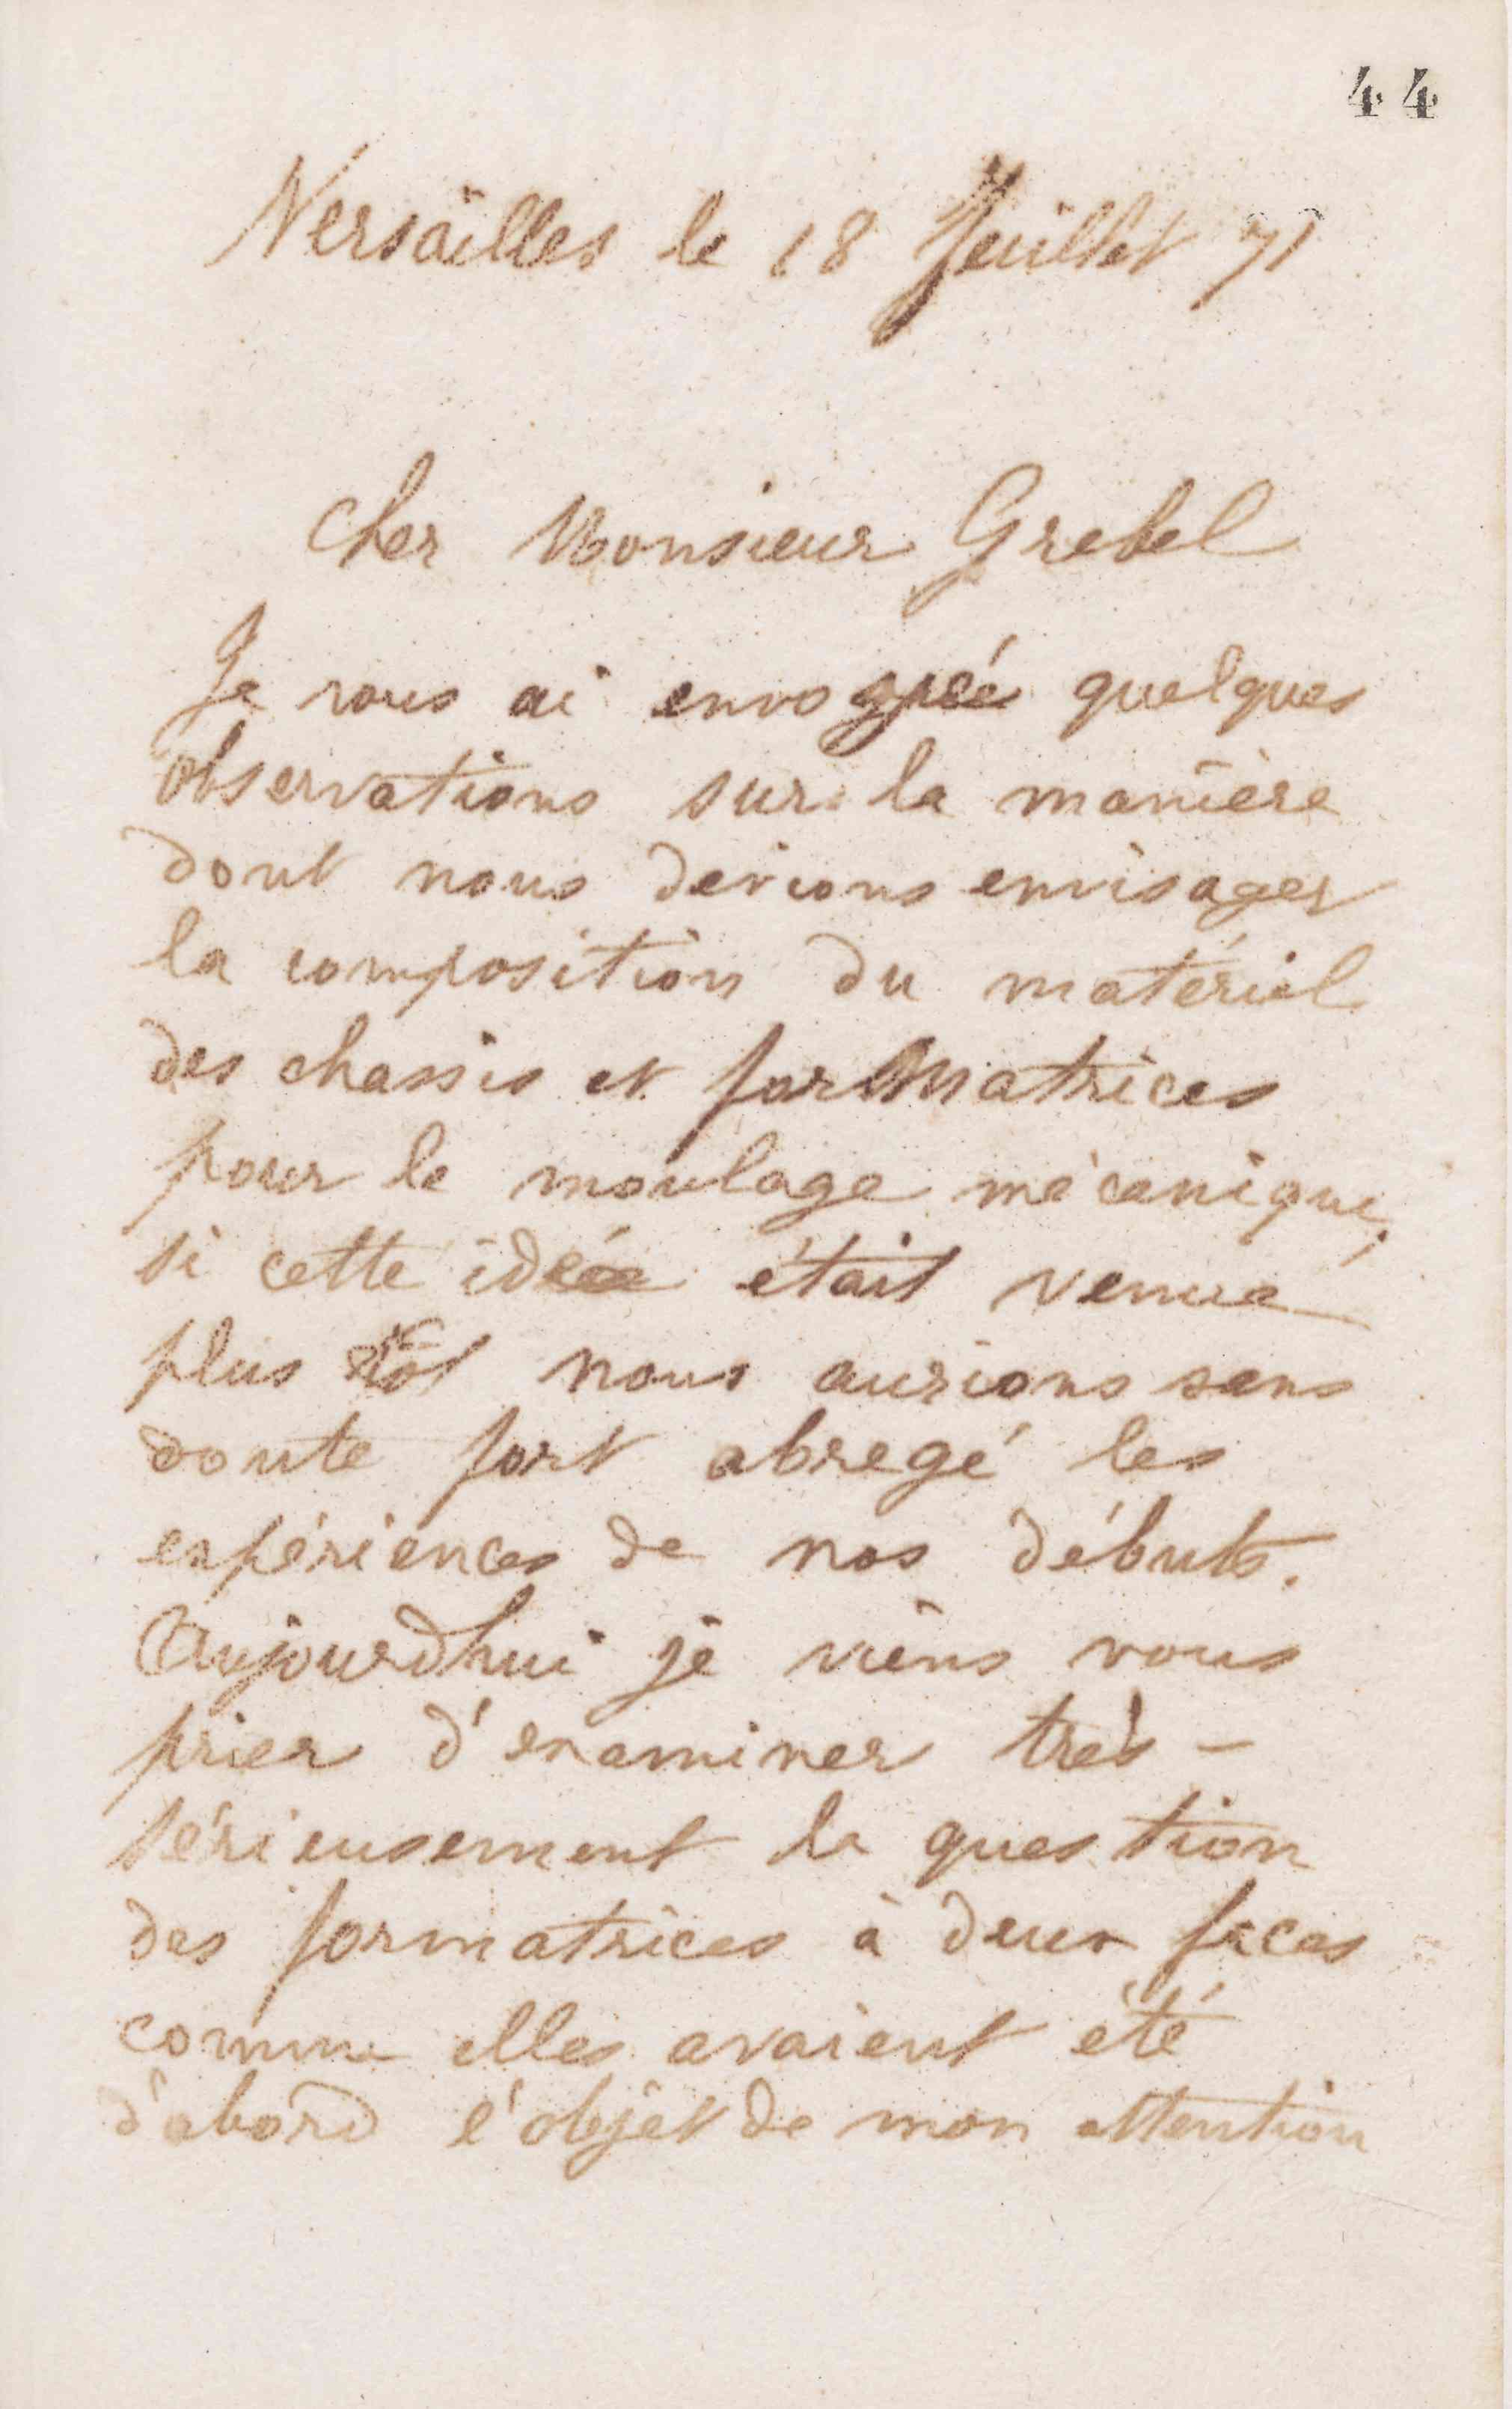 44
Versailles le 18 Juillet 71
Cher Monsieur Grebel
Je vous ai envoyé quelques
observations sur la manière
dont nous devions envisager
la composition du matériel
des chassis et formatrices
pour le moulage mécanique,
si cette idée était venue
plus tôt nous aurions sans
doute fort abregé les
expériences de nos débuts.
Aujourdhui je viens vous
prier d'examiner très-
sérieusement la question
des formatrices à deux faces
comme elles avaient été
d'abord l'objet de mon attention